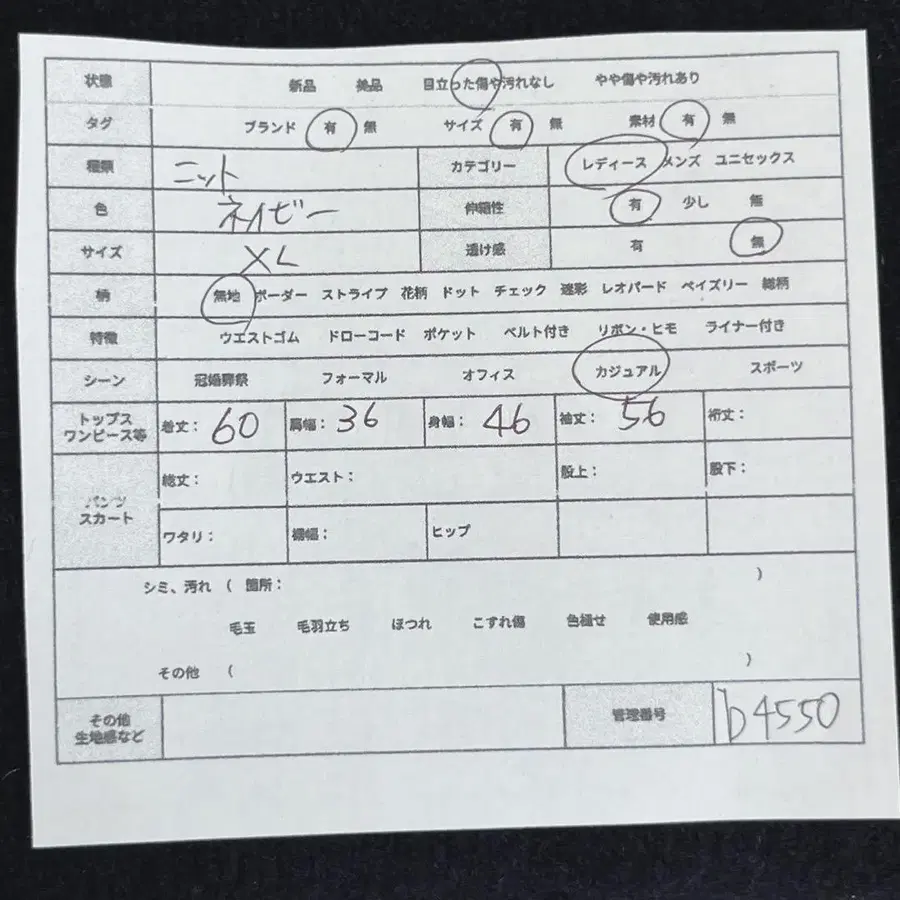 状態 新品 美品 目立った傷や汚れなし やや傷や汚れあり
タグ ブランド 有 無 サイズ 有 無 素材 有 無
種類 ニット カテゴリー レディース メンズ ユニセックス
色 ネイビー 伸縮性 有 少し 無
サイズ XL 透け感 有 無
柄 無地 ボーダー ストライプ 花柄 ドット チェック 迷彩 レオパード ペイズリー 総柄
特徴 ウエストゴム ドローコード ポケット ベルト付き リボン・ヒモ ライナー付き
シーン 冠婚葬祭 フォーマル オフィス カジュアル スポーツ
トップス
ワンピース等 着丈: 60 肩幅: 36 身幅: 46 袖丈: 56 裄丈:
パンツ
スカート
総丈: ウエスト: 股上: 股下:
ワタリ: 裾幅: ヒップ
シミ、汚れ ( 箇所: )
毛玉 毛羽立ち ほつれ こすれ傷 色褪せ 使用感
その他 ( )
その他
生地感など 管理番号 b4550